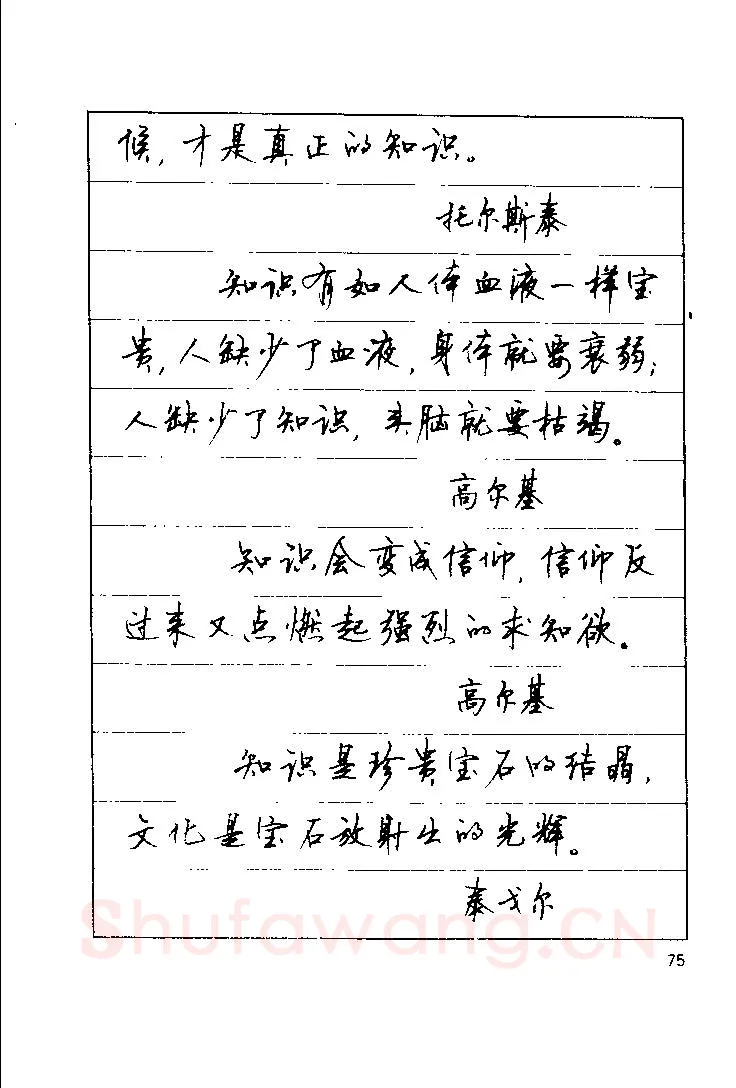 候，才是真正的知识。
托尔斯泰
知识有如人体血液一样宝
贵，人缺少了血液，身体就要衰弱；
人缺少了知识，头脑就要枯竭。
高尔基
知识会变成信仰，信仰反
过来又点燃起强烈的求知欲。
高尔基
知识是珍贵宝石的结晶，
文化是宝石放射出的光辉。
泰戈尔
Shufawang.CN
75